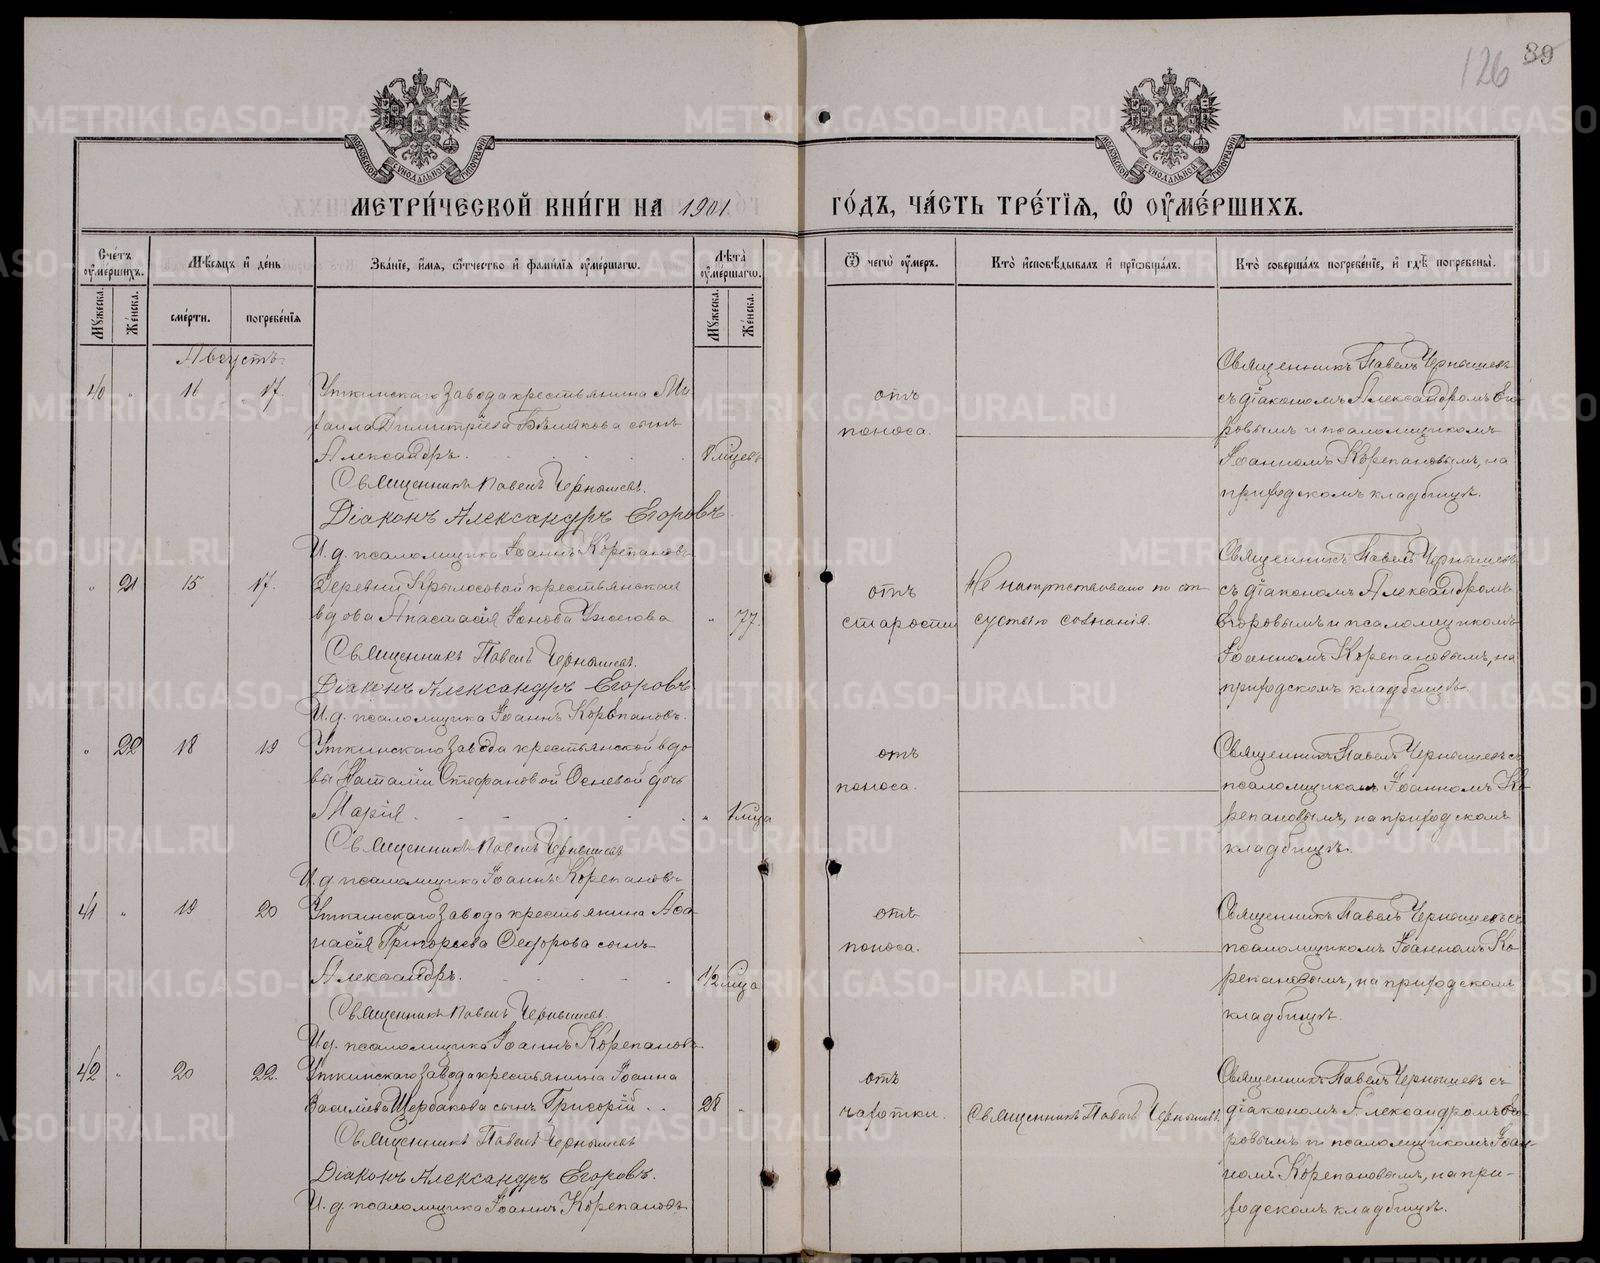 126 89
МОСКОВСКОЙ СѴНОДАЛЬНОЙ ТИПОГРАФІИ
МОСКОВСКОЙ СѴНОДАЛЬНОЙ ТИПОГРАФІИ
МЕТРИ́ЧЕСКОЙ КНИ́ГИ НА 1901
ГО́ДЪ, ЧА́СТЬ ТРЕ́ТІѦ, Ѡ ОУМЕ́РШИХЪ.
Сче́тъ оумершихъ.
Мѣсяцъ и день
Зва́ніе, и́мя, о́тчество и фами́лія оуме́ршагѡ.
Лѣта̀ оуме́ршагѡ.
Ѿ чегѡ̀ оу́меръ.
Кто̀ исповѣ́дывалъ и пріѡбща́лъ.
Кто̀ соверша́лъ погребе́ніе, и гдѣ̀ погребены̀.
Мужеска.
Женска.
сме́рти.
погребе́нія
Мужеска.
Женска.
Августъ.
40 " 16 17.
Уткинскаго завода крестьянина Ми-
хаила Димитріева сынъ
Александръ.
Священникъ Павелъ Чернышевъ.
Діаконъ Александръ Егоровъ
И. д. псаломщика Іоаннъ Корепановъ
отъ
поноса.
Священникъ Павелъ Чернышевъ
съ діакономъ Александромъ Его-
ровымъ и псаломщикомъ
Іоанномъ Корепановымъ, на
приходскомъ кладбищѣ.
" 21 15 17.
Деревни Крылосовой крестьянская
вдова Анастасія Іонова
" 77.
Священникъ Павелъ Чернышевъ.
Діаконъ Александръ Егоровъ
И. д. псаломщика Іоаннъ Корепановъ.
отъ
старости
Не напутствована по от-
сутствію сознанія.
Священникъ Павелъ Чернышевъ
съ діакономъ Александромъ
Егоровымъ и псаломщикомъ
Іоанномъ Корепановымъ, на
приходскомъ кладбищѣ.
" 22 18 19
Уткинскаго завода крестьянской вдо-
вы Наталіи Стефановой дочь
Марія
" 1 мца
Священникъ Павелъ Чернышевъ
И. д. псаломщика Іоаннъ Корепановъ
отъ
поноса.
Священникъ Павелъ Чернышевъ съ
псаломщикомъ Іоанномъ Ко-
репановымъ, на приходскомъ
кладбищѣ.
41 " 19 20
Уткинскаго завода крестьянина Аѳа-
насія Григорьева Ѳедорова сынъ
Александръ.
1/2 мца
Священникъ Павелъ Чернышевъ.
И. д. псаломщика Іоаннъ Корепановъ
отъ
поноса.
Священникъ Павелъ Чернышевъ съ
псаломщикомъ Іоанномъ Ко-
репановымъ, на приходскомъ
кладбищѣ.
42 " 20 22.
Уткинскаго завода крестьянина Іоанна
Василіева Щербакова сынъ Григорій
28 "
Священникъ Павелъ Чернышевъ
Діаконъ Александръ Егоровъ.
И. д. псаломщика Іоаннъ Корепановъ
отъ
чахотки.
Священникъ Павелъ Чернышевъ
Священникъ Павелъ Чернышевъ съ
діакономъ Александромъ Его-
ровымъ и псаломщикомъ Іоан-
номъ Корепановымъ, на при-
ходскомъ кладбищѣ.
METRIKI.GASO-URAL.RU